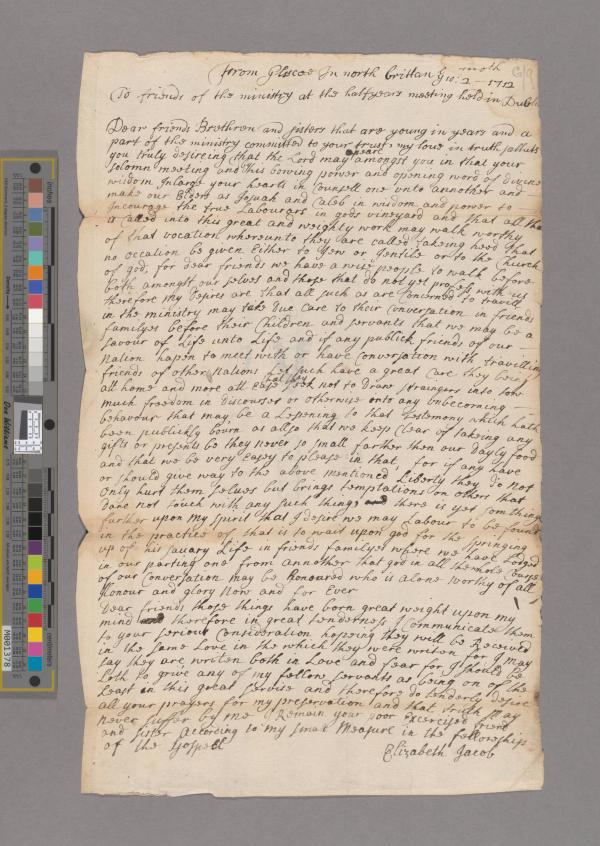 From Glscoe In north brittan ye 10: 2 moth - 1712
To friends of the ministry at the halfyears meeting held in Dublin
Dear friends Brethren and sisters that are young in years and a
part of the ministry committed to your trust, my love in truth salluts
you truly desireing that the Lord may apeare amongst you in that your
solomn meeting and this bowing power and opening word of divine
wisdom Inlarge your hearts in Counsell one unto annother and
make our Elders as Josuah and Caleb in wisdom and power to
Incourage the true Labourars in gods vineyard and that all that
is Called into this great and weighty work may walk worthy
of that vocation whereunto they are called takeing heed that
no occation be given Either to Jew or Gentile or to the Church
of god, for dear friends we have a wise people to walk before
both amongst our selves and those that do not yet profess with us
therefore my desires are that all such as are Concerned to travill
in the ministry may take due Care to their Conversation in friends
familyes before their Children and servants that we may be a
savour of Life unto Life and if any publick friends of our
Nation hapen to meet with or have Conversation with travilling
friends of other Nations Let such have a great Care they being
all home and more att Ease that they seek not to draw straingers into tow
much freedom in discourses or otherwise onto any unbecorning
behaviour that may be a Lessening to that testemony which hath
been publickly bourn as allso that we keep Clear of takeing any
gifts or presents be they never so small farther then our dayly food
and that we be very Easey to please in that, for if any have
or should give way to the above mentioned Liberty they do not
Only hurt them selves but brings temptations on others that
dare not touch with any such things there is yet somthing
further upon my spirit that I desire we may Labour to be found
in the practice of that is to wait upon god for the springing
up of his Life in friends familyes where we have Lodged
in our parting one from annother that god in all the whole Course
of our Conversation may be honoured who is alone worthy of all
Honour and glory Now and for Ever
Dear friends those things have born great weight upon my
mind therefore in great tenderness I Communicate them
to your serious Consideration hopeing they will be Received
in the same Love in the which they were writen for I may
say they are writen both in Love and fear for I should be
Loth to grive any of my fellow servants as being on of the
Least in this great servise and therefore do tenderly desire
all your prayers for my preservation and that truth May
never suffer by me I Remain your poor Exercised friend
and sister According to My small Measure in the fellowship
of the Gospell
Elizabeth Jacob
Doc Williams
centimetres
M001378